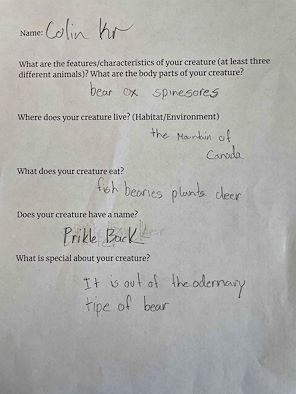 Name: Colin Kr
What are the features/characteristics of your creature (at least three
different animals)? What are the body parts of your creature?
bear ox spinesores
Where does your creature live? (Habitat/Environment)
the Mantain of
Canada
What does your creature eat?
fish bearies plants deer
Does your creature have a name?
Prikle Back
What is special about your creature?
It is out of the odernary
tipe of bear